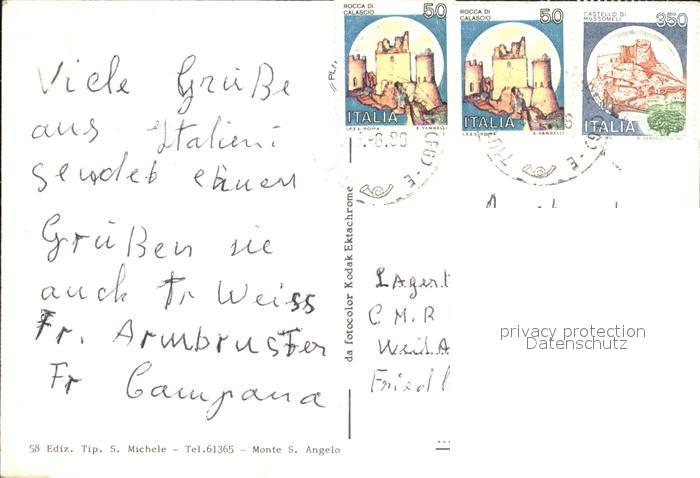 Viele Grüße
aus Italien:
sendet ehnen
Grüßen sie
auch Fr Weiss
Fr. Armbruster
Fr Campana
58 Ediz. Tip. S. Michele - Tel.61365 - Monte S. Angelo
da fotocolor Kodak Ektachrome
ROCCA DI
CALASCIO
50
ITALIA
I.P.Z.S.-ROMA E. VANGELLI
ROCCA DI
CALASCIO
50
ITALIA
I.P.Z.S.-ROMA E. VANGELLI
CASTELLO DI
MUSSOMELI
350
ITALIA
Lager
C M. R
Weid A
Fried
privacy protection
Datenschutz